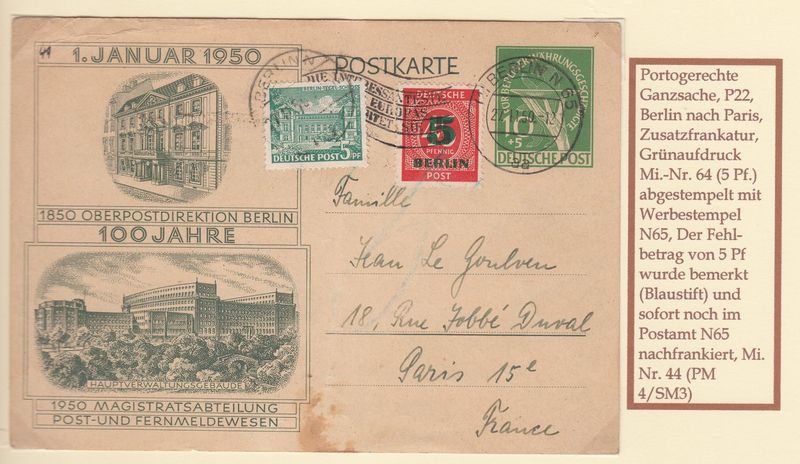 1. JANUAR 1950
1850 OBERPOSTDIREKTION BERLIN
100 JAHRE
HAUPTVERWALTUNGSGEBÄUDE
1950 MAGISTRATSABTEILUNG
POST-UND FERNMELDEWESEN
POSTKARTE
BERLIN N
DEUTSCHE POST 5 PF
DEUTSCHE
5
PFENNIG
BERLIN
POST
BERLIN N 65
WÄHRUNGSGESCHÄDIGTE
10
+5
DEUTSCHE POST
Famille
Jean Le Goulven
18, Rue Jobbé Duval
Paris 15e
France
Portogerechte
Ganzsache, P22,
Berlin nach Paris,
Zusatzfrankatur,
Grünaufdruck
Mi.-Nr. 64 (5 Pf.)
abgestempelt mit
Werbestempel
N65, Der Fehl-
betrag von 5 Pf
wurde bemerkt
(Blaustift) und
sofort noch im
Postamt N65
nachfrankiert, Mi.
Nr. 44 (PM
4/SM3)